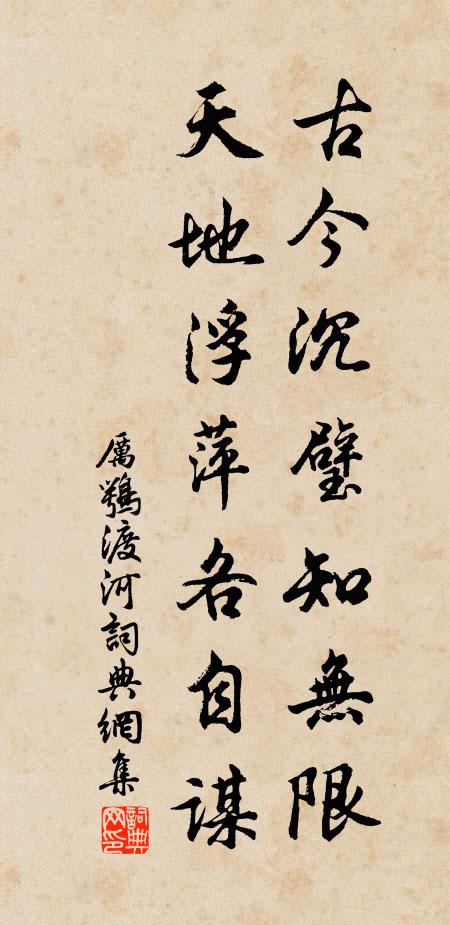 古今沉璧知無限
天地浮萍各自謀
厲鶚渡河詞典網集
詞典网印